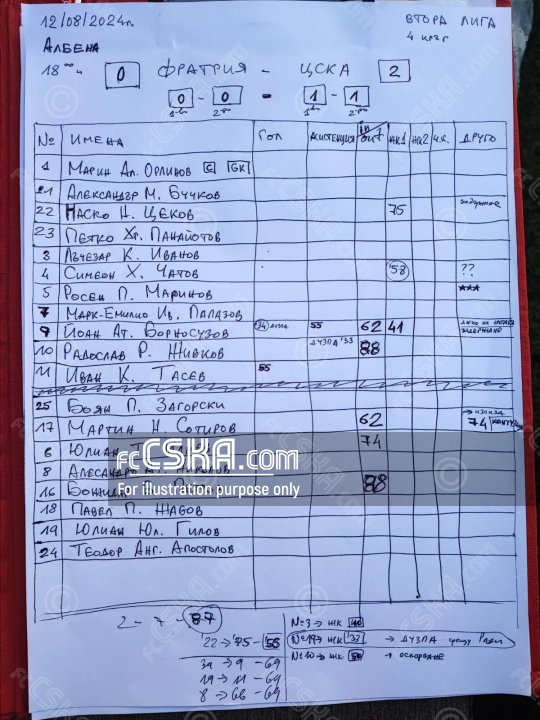 12/08/2024г.
ВТОРА ЛИГА
АЛБЕНА
4 кръг
18⁰⁰ч 0 ФРАТРИЯ - ЦСКА 2
0 - 0 - 1 - 1
№ ИМЕНА ГОЛ АСИСТЕНЦИЯ in/out ЖК1 ЖК2 Ч.К. ДРУГО
1 МАРИН АЛ. ОРЛИНОВ C GK
21 АЛЕКСАНДЪР М. БУЧКОВ
22 НАСКО Н. ЦЕКОВ 75 задържане
23 ПЕТКО ХР. ПАНАЙОТОВ
3 ЛЪЧЕЗАР К. ИВАНОВ
4 СИМЕОН Х. ЧАТОВ '58 ??
5 РОСЕН П. МАРИНОВ
7 МАРК-ЕМИЛИО ИВ. ПАПАЗОВ
9 ЙОАН АТ. БОРНОСУЗОВ 34 55 62 41
10 РАДОСЛАВ Р. ЖИВКОВ ДУЗПА '33 88
11 ИВАН К. ТАСЕВ 55
25 БОЯН П. ЗАГОРСКИ
17 МАРТИН Н. СОТИРОВ 62 74
6 ЮЛИАН 74
8
16 88
18 ПАВЕЛ П. ЖАБОВ
19 ЮЛИАН ЮЛ. ГИЛОВ
24 ТЕОДОР АНГ. АПОСТОЛОВ
fcCSKA.com
For illustration purpose only
2 - 7 - 87
'22 → '75 -
→ 9 - 69
19 → 11 - 69
8 → 66 - 69
№3 → ЖК
→ ЖК '33 → ДУЗПА срещу
№10 → ЖК →